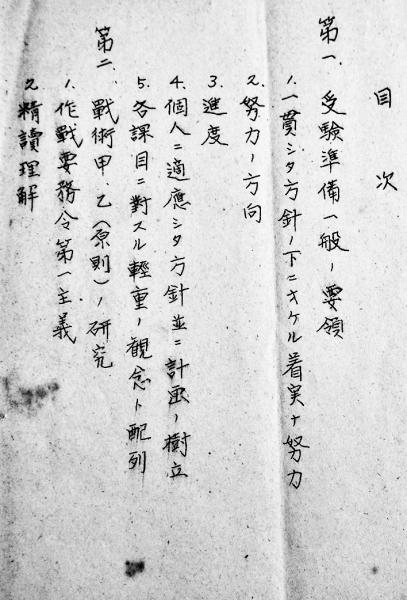 目次
第一、受験準備一般ノ要領
1. 一貫シタ方針ノ下ニオケル着実ナ努力
2. 努力ノ方向
3. 進度
4. 個人ニ適應シタ方針並ニ計畫ノ樹立
5. 各課目ニ對スル輕重ノ観念ト配列
第二、戰術甲、乙(原則)ノ研究
1. 作戰要務令第一主義
2. 精讀理解